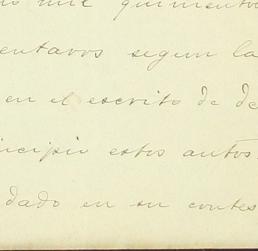 mil quinientos
entavos segun la
en el escrito de de
ncipio estos autos
dado en su contes